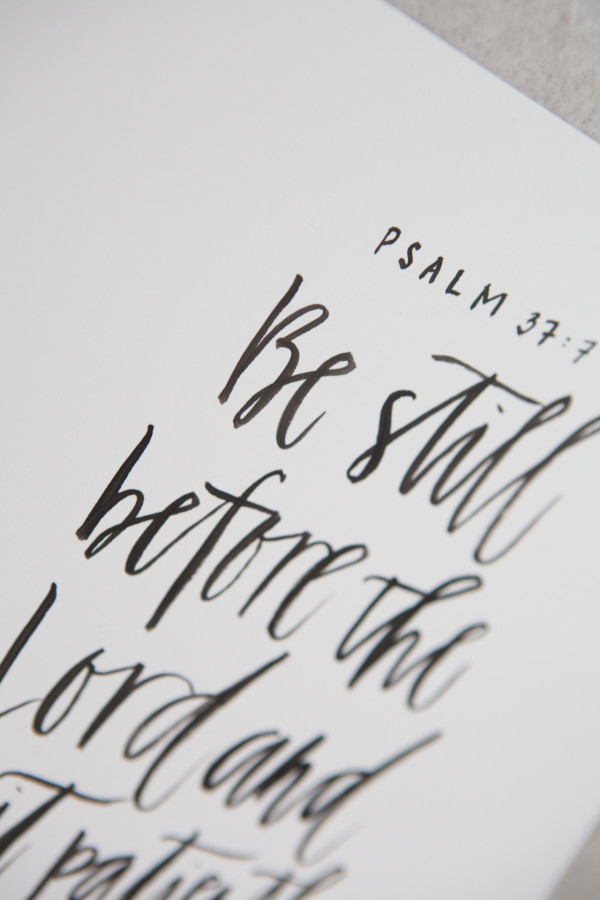 PSALM 37:7
Be still
before the
Lord and
it patiently